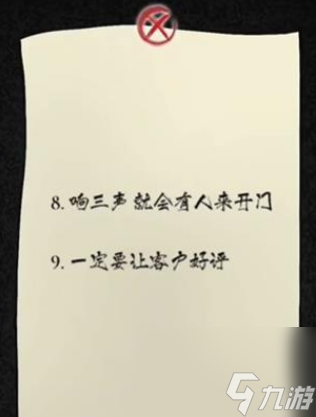 8. 响三声 就会有人来开门
9. 一定要让客户好评
九游